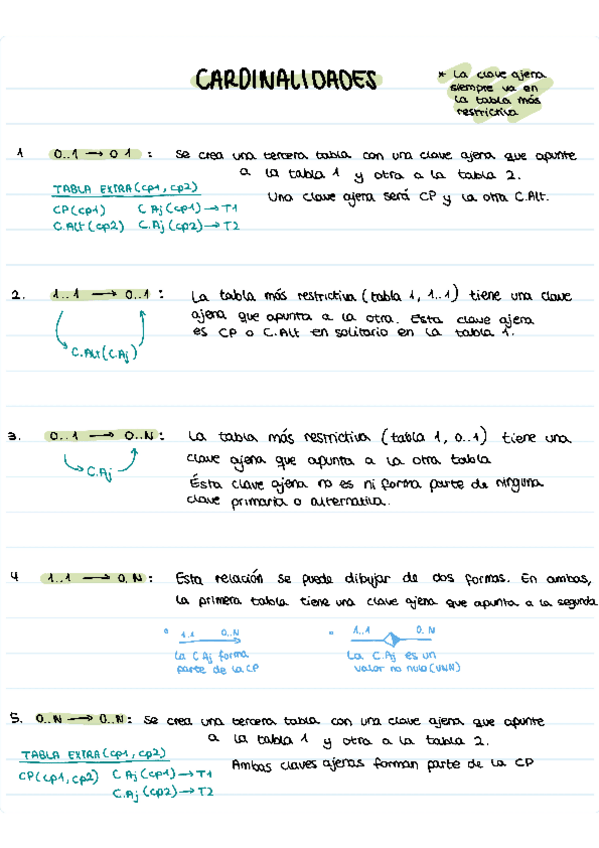 CARDINALIDADES
* La clave ajena
siempre va en
la tabla más
restrictiva
1 0..1 → 0 1 : Se crea una tercera tabla con una clave ajena que apunte
a la tabla 1 y otra a la tabla 2.
Una clave ajena será CP y la otra C.Alt.
TABLA EXTRA (cp1, cp2)
CP (cp1) C Aj (cp1) → T1
C.Alt (cp2) C.Aj (cp2) → T2
2. 1..1 → 0..1 : La tabla más restrictiva (tabla 1, 1..1) tiene una clave
ajena que apunta a la otra. Esta clave ajena
es CP o C.Alt en solitario en la tabla 1.
C.Alt (C.Aj)
3. 0..1 → 0..N : La tabla más restrictiva (tabla 1, 0..1) tiene una
clave ajena que apunta a la otra tabla
Ésta clave ajena no es ni forma parte de ninguna
clave primaria o alternativa.
C.Aj
4 1..1 → 0. N : Esta relación se puede dibujar de dos formas. En ambas,
la primera tabla tiene una clave ajena que apunta a la segunda
° 1.1 0..N
La C Aj forma
parte de la CP
° 1..1 0. N
La C.Aj es un
valor no nulo (VNN)
5. 0..N → 0..N : Se crea una tercera tabla con una clave ajena que apunte
a la tabla 1 y otra a la tabla 2.
Ambas claves ajenas forman parte de la CP
TABLA EXTRA (cp1, cp2)
CP (cp1, cp2) C Aj (cp1) → T1
C.Aj (cp2) → T2